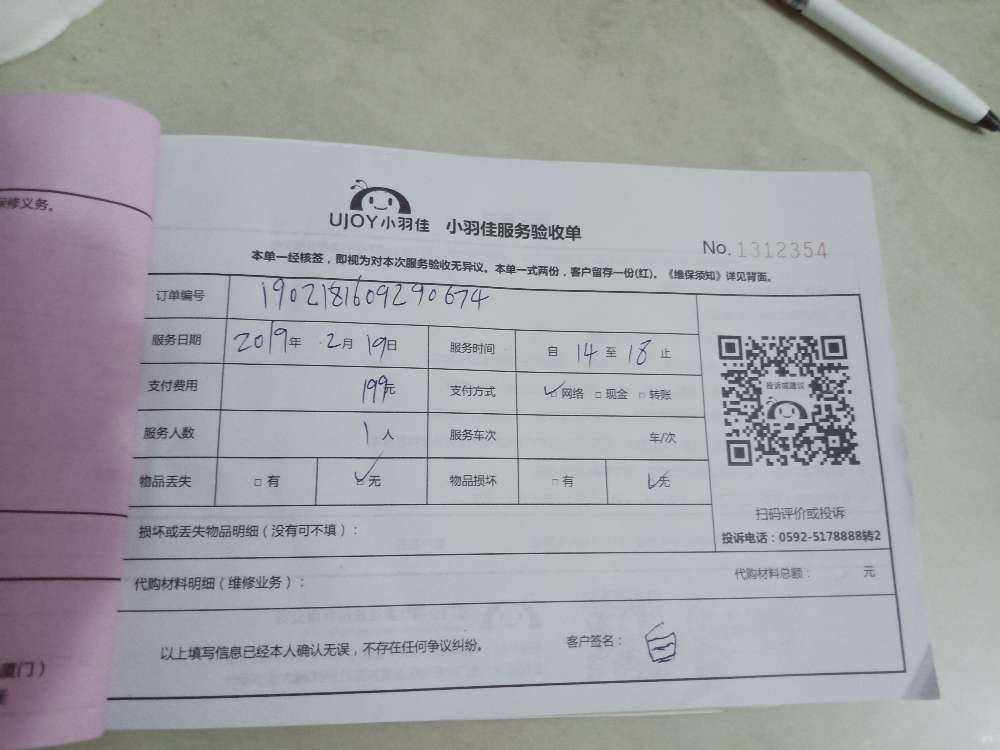 保修义务。
UJOY小羽佳 小羽佳服务验收单
No. 1312354
本单一经核签，即视为对本次服务验收无异议。本单一式两份，客户留存一份(红)。《维保须知》详见背面。
订单编号 190218160929067​4
服务日期 2019年 2月 19日 服务时间 自 14 至 18 止
支付费用 199元 支付方式 ☑网络 □现金 □转账
投诉或建议
服务人数 1 人 服务车次 车/次
物品丢失 □有 ☑无 物品损坏 □有 ☑无
扫码评价或投诉
损坏或丢失物品明细（没有可不填）：
投诉电话：0592-5178888转2
代购材料明细（维修业务）： 代购材料总额： 元
以上填写信息已经本人确认无误，不存在任何争议纠纷。 客户签名：
厦门）